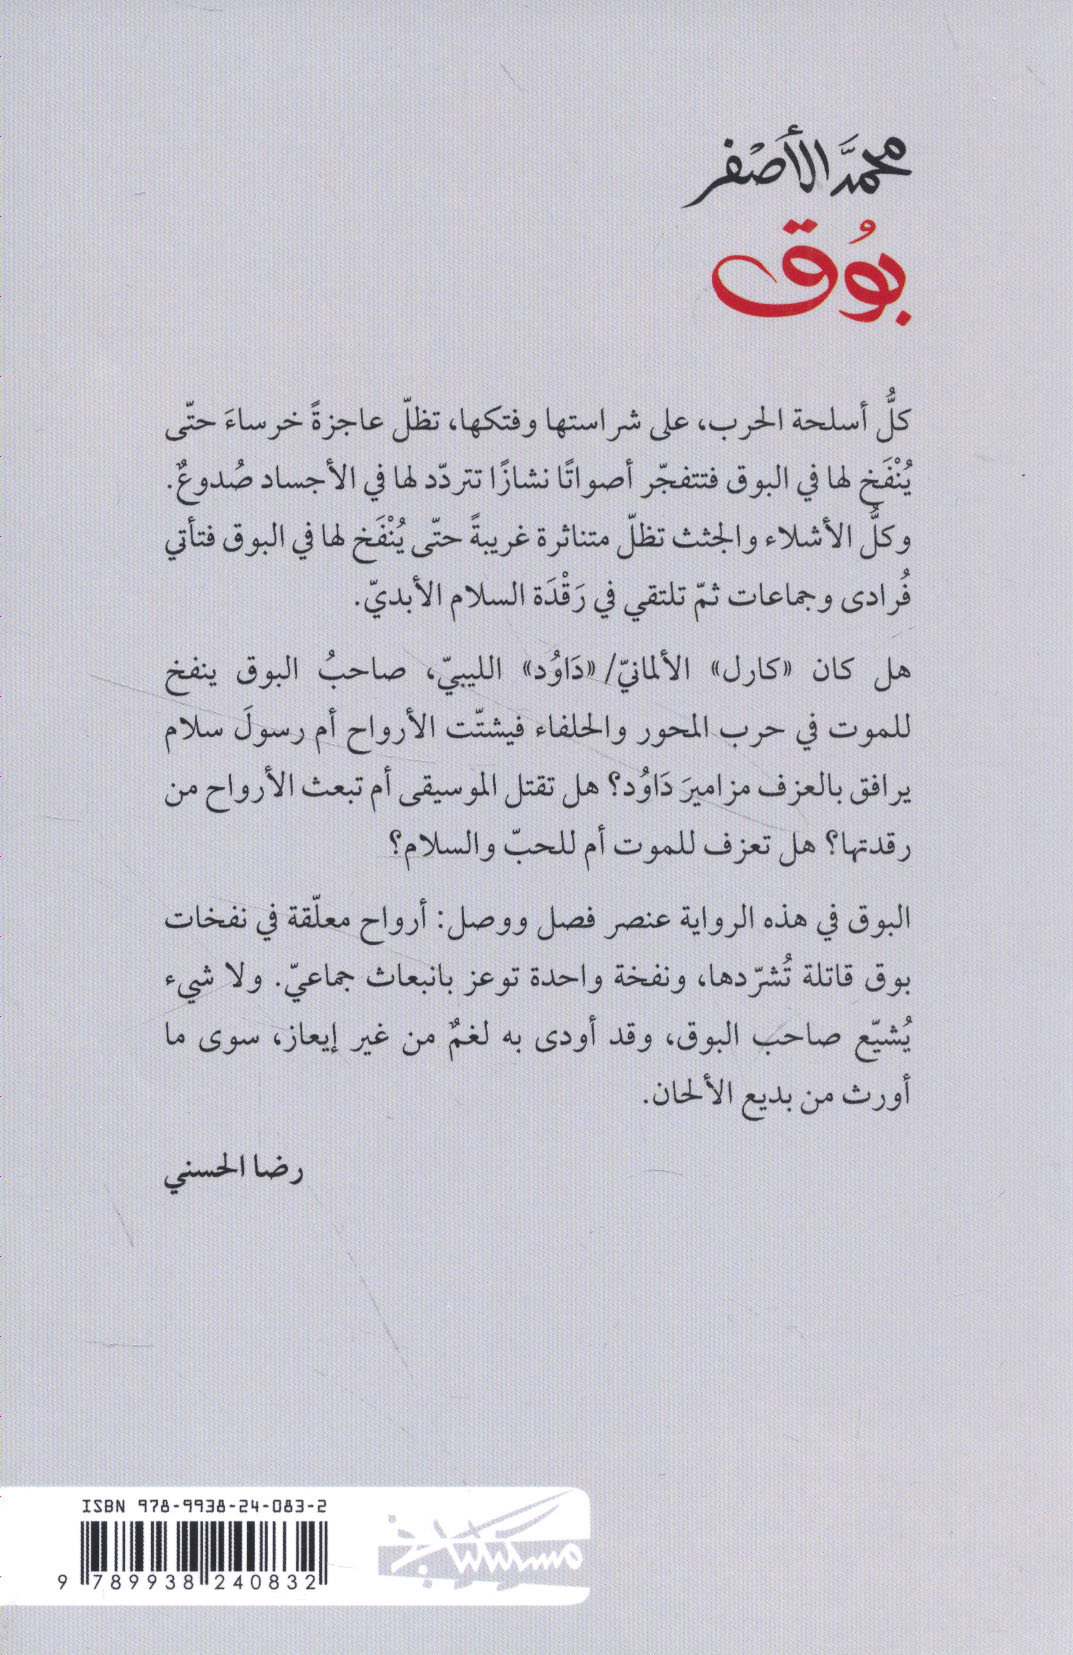 محمَّد الأَصْفر
بوُق
كلُّ أسلحة الحرب، على شراستها وفتكها، تظلّ عاجزةً خرساءَ حتّى
يُنْفَخ لها في البوق فتتفجّر أصواتًا نشازًا تتردّد لها في الأجساد صُدوعٌ.
وكلُّ الأشلاء والجثث تظلّ متناثرة غريبةً حتّى يُنْفَخ لها في البوق فتأتي
فُرادى وجماعات ثمّ تلتقي في رَقْدَة السلام الأبديّ.
هل كان «كارل» الألمانيّ/ «دَاوُد» الليبيّ، صاحبُ البوق ينفخ
للموت في حرب المحور والحلفاء فيشتّت الأرواح أم رسولَ سلام
يرافق بالعزف مزاميرَ دَاوُد؟ هل تقتل الموسيقى أم تبعث الأرواح من
رقدتها؟ هل تعزف للموت أم للحبّ والسلام؟
البوق في هذه الرواية عنصر فصل ووصل: أرواح معلّقة في نفخات
بوق قاتلة تُشرّدها، ونفخة واحدة توعز بانبعاث جماعيّ. ولا شيء
يُشيّع صاحب البوق، وقد أودى به لغمٌ من غير إيعاز، سوى ما
أورث من بديع الألحان.
رضا الحسني
ISBN 978-9938-24-083-2
9 789938 240832
مسكيلياني